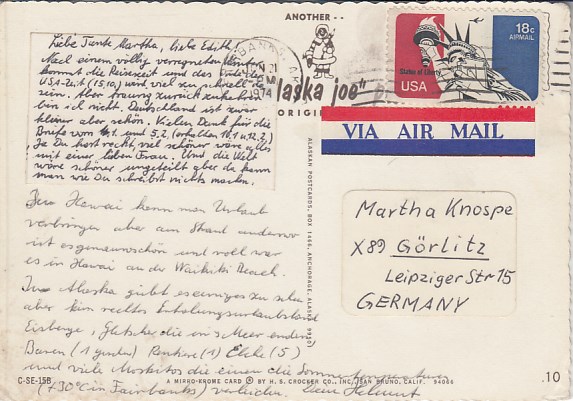 ANOTHER - -
FAIRBANKS
PM
1974
Alaska joe"
ORIGIN
18c
AIRMAIL
Statue of Liberty
USA
VIA AIR MAIL
Liebe Tante Martha, liebe Edith!
Nach einem völlig verregneten
kommt die Reisezeit und das Ende der
USA-Zeit (15.10.) wird viel zu schnell da
sein. Aber traurig zurückzukehren
bin ich nicht. Deutschland ist zwar
kleiner aber schön. Vielen Dank für die
Briefe vom 4.1. und 5.2. (erhalten 10.1 u. 12.2.)
Ja Du hast recht, viel schöner wäre alles
mit einer lieben Frau. Und die Welt
wäre schöner ungeteilt aber da kann
man wie Du schreibst nichts machen.
In Hawaii kann man Urlaub
verbringen aber am Strand
ist es genauso schön und voll war
es in Hawai an der Waikiki Beach.
In Alaska gibt es einiges zu sehn
aber kein rechtes Erholungsurlaubsland
Eisberge, Gletscher die ins Meer enden
Bären (1 gesehen) Rentiere (1) Elche (5)
und viele Moskitos die einem die Sommertemperaturen
(+30°C in Fairbanks) verleiden. Euer Helmut
Martha Knospe
X89 Görlitz
Leipziger Str 15
GERMANY
ALASKAN POSTCARDS, BOX 1466, ANCHORAGE, ALASKA 99501
C-SE-15B
A MIRRO-KROME CARD ® BY H. S. CROCKER CO., INC. SAN BRUNO, CALIF. 94066
.10